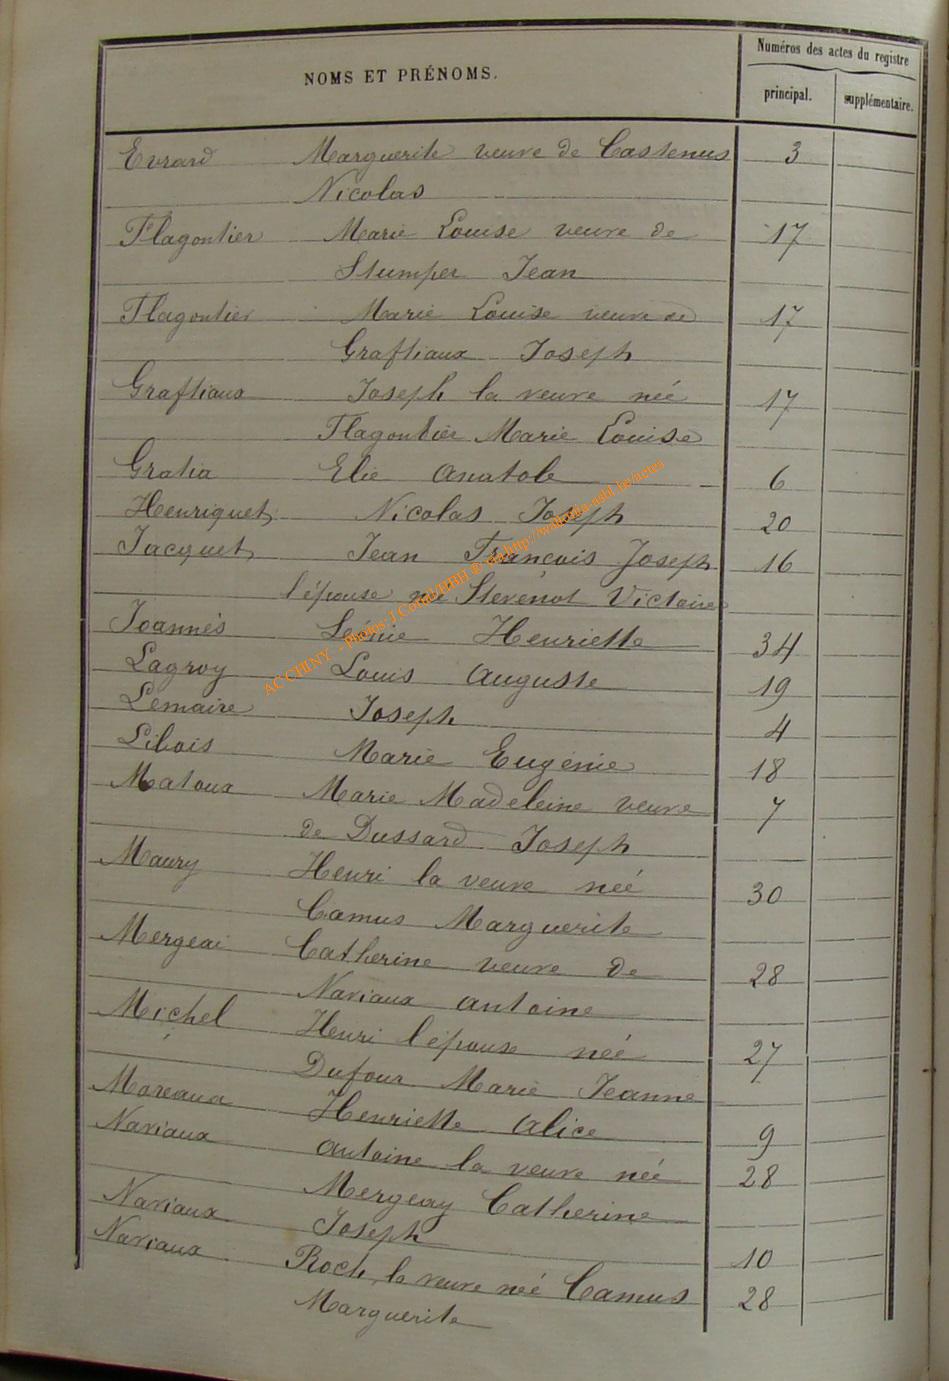 NOMS ET PRÉNOMS.
Numéros des actes du registre
principal. supplémentaire.
Evrard Marguerite veuve de Castenus 3
Nicolas
Flagontier Marie Louise veuve de 17
Stumper Jean
Flagontier Marie Louise veuve de 17
Graftiaux Joseph
Graftiaux Joseph la veuve née 17
Flagontier Marie Louise
Gratia Elie Anatole 6
Henriquet Nicolas Joseph 20
Jacquet Jean François Joseph 16
l'épouse née Stevenot Victoire
Joannès Léonie Henriette 34
Lagroy Louis Auguste 19
Lemaire Joseph 4
Libois Marie Eugénie 18
Matoux Marie Madeleine veuve 7
de Dussard Joseph
Maury Henri la veuve neé 30
Camus Marguerite
Mergeai Catherine veuve de 28
Naviaux Antoine
Michel Henri l'épouse neé 27
Dufour Marie Jeanne
Moreaux Henriette Alice 9
Naviaux Antoine la veuve neé 28
Mergeay Catherine
Naviaux Joseph 10
Naviaux Roch, la veuve neé Camus 28
Marguerite
AC CHINY - Photos J Collin/BBH © via http://wallonia-asbl.be/actes